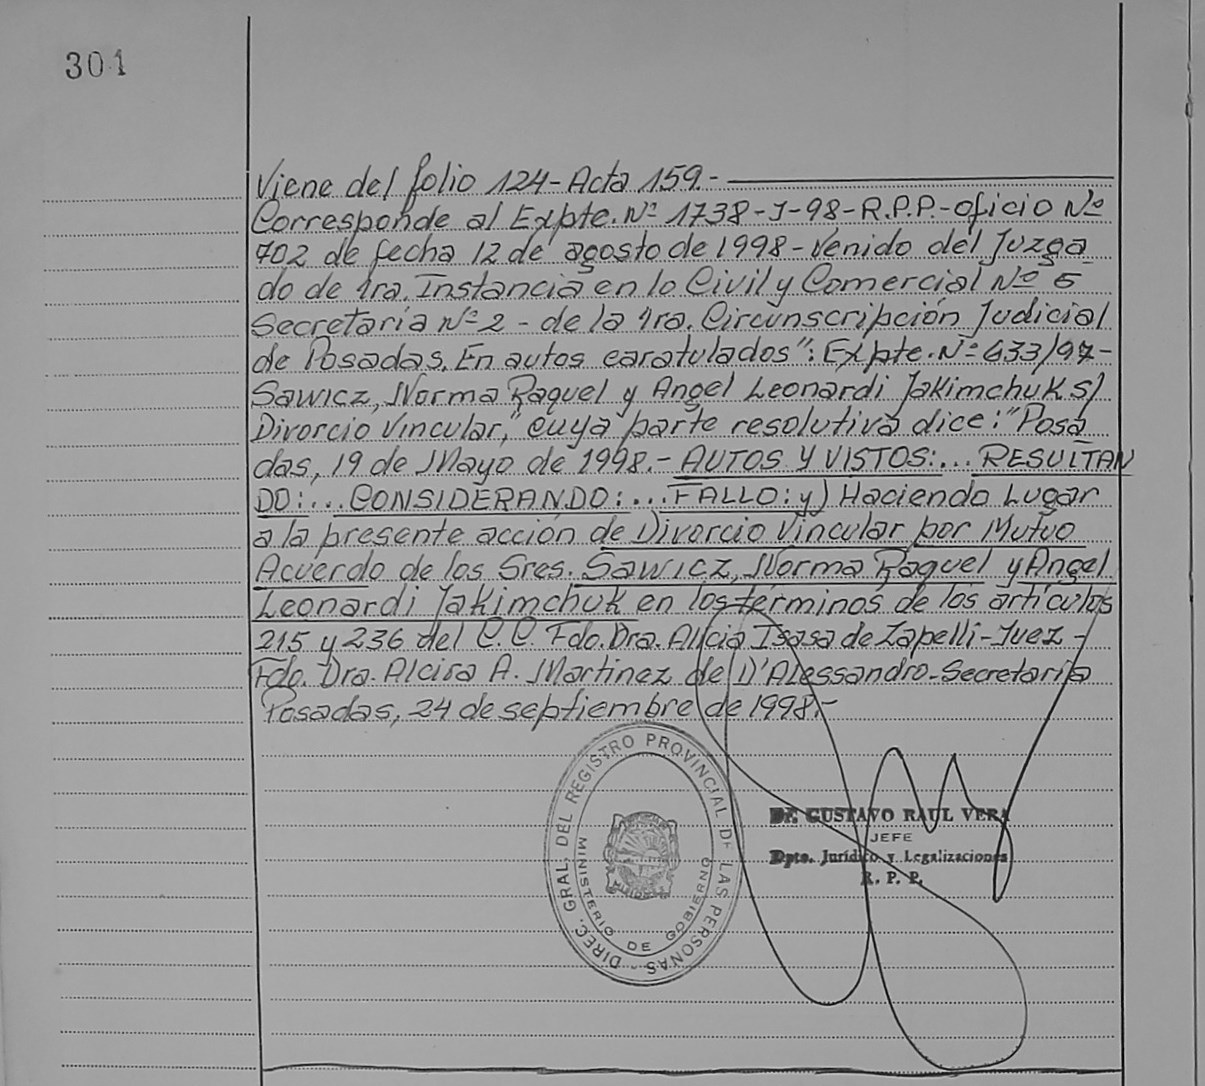 301
Viene del folio 124-Acta 159.-
Corresponde al Expte. Nº 1738-J-98-R.P.P.-oficio Nº
702 de fecha 12 de agosto de 1998-Venido del Juzga
do de 1ra. Instancia en lo Civil y Comercial Nº 5
Secretaría Nº 2 - de la 1ra. Circunscripción Judicial
de Posadas. En autos caratulados": Expte. Nº 633/97-
Sawicz, Norma Raquel y Angel Leonardi Jakimchuk S/
Divorcio Vincular," cuya parte resolutiva dice: "Posa
das, 19 de Mayo de 1998.- AUTOS Y VISTOS:... RESULTAN
DO:... CONSIDERANDO:... FALLO: y) Haciendo Lugar
a la presente acción de Divorcio Vincular por Mutuo
Acuerdo de los Sres. Sawicz, Norma Raquel y Angel
Leonardi Jakimchuk en los terminos de los artículos
215 y 236 del C.C. Fdo. Dra. Alicia Isasa de Zapelli-Juez-
Fdo. Dra. Alcira A. Martinez de D'Alessandro-Secretaria
Posadas, 24 de septiembre de 1998.-
DIREC. GRAL. DEL REGISTRO PROVINCIAL DE LAS PERSONAS
MINISTERIO DE GOBIERNO
GUSTAVO RAUL VERA
JEFE
Dpto. Jurídico y Legalizaciones
R. P. P.